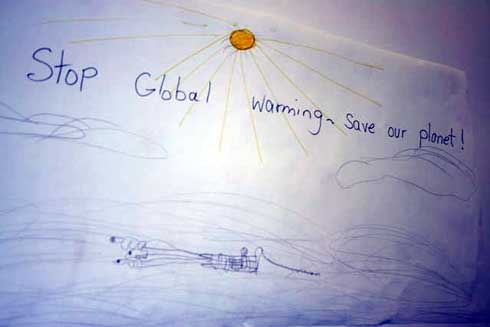 Stop Global Warming~ Save our planet!